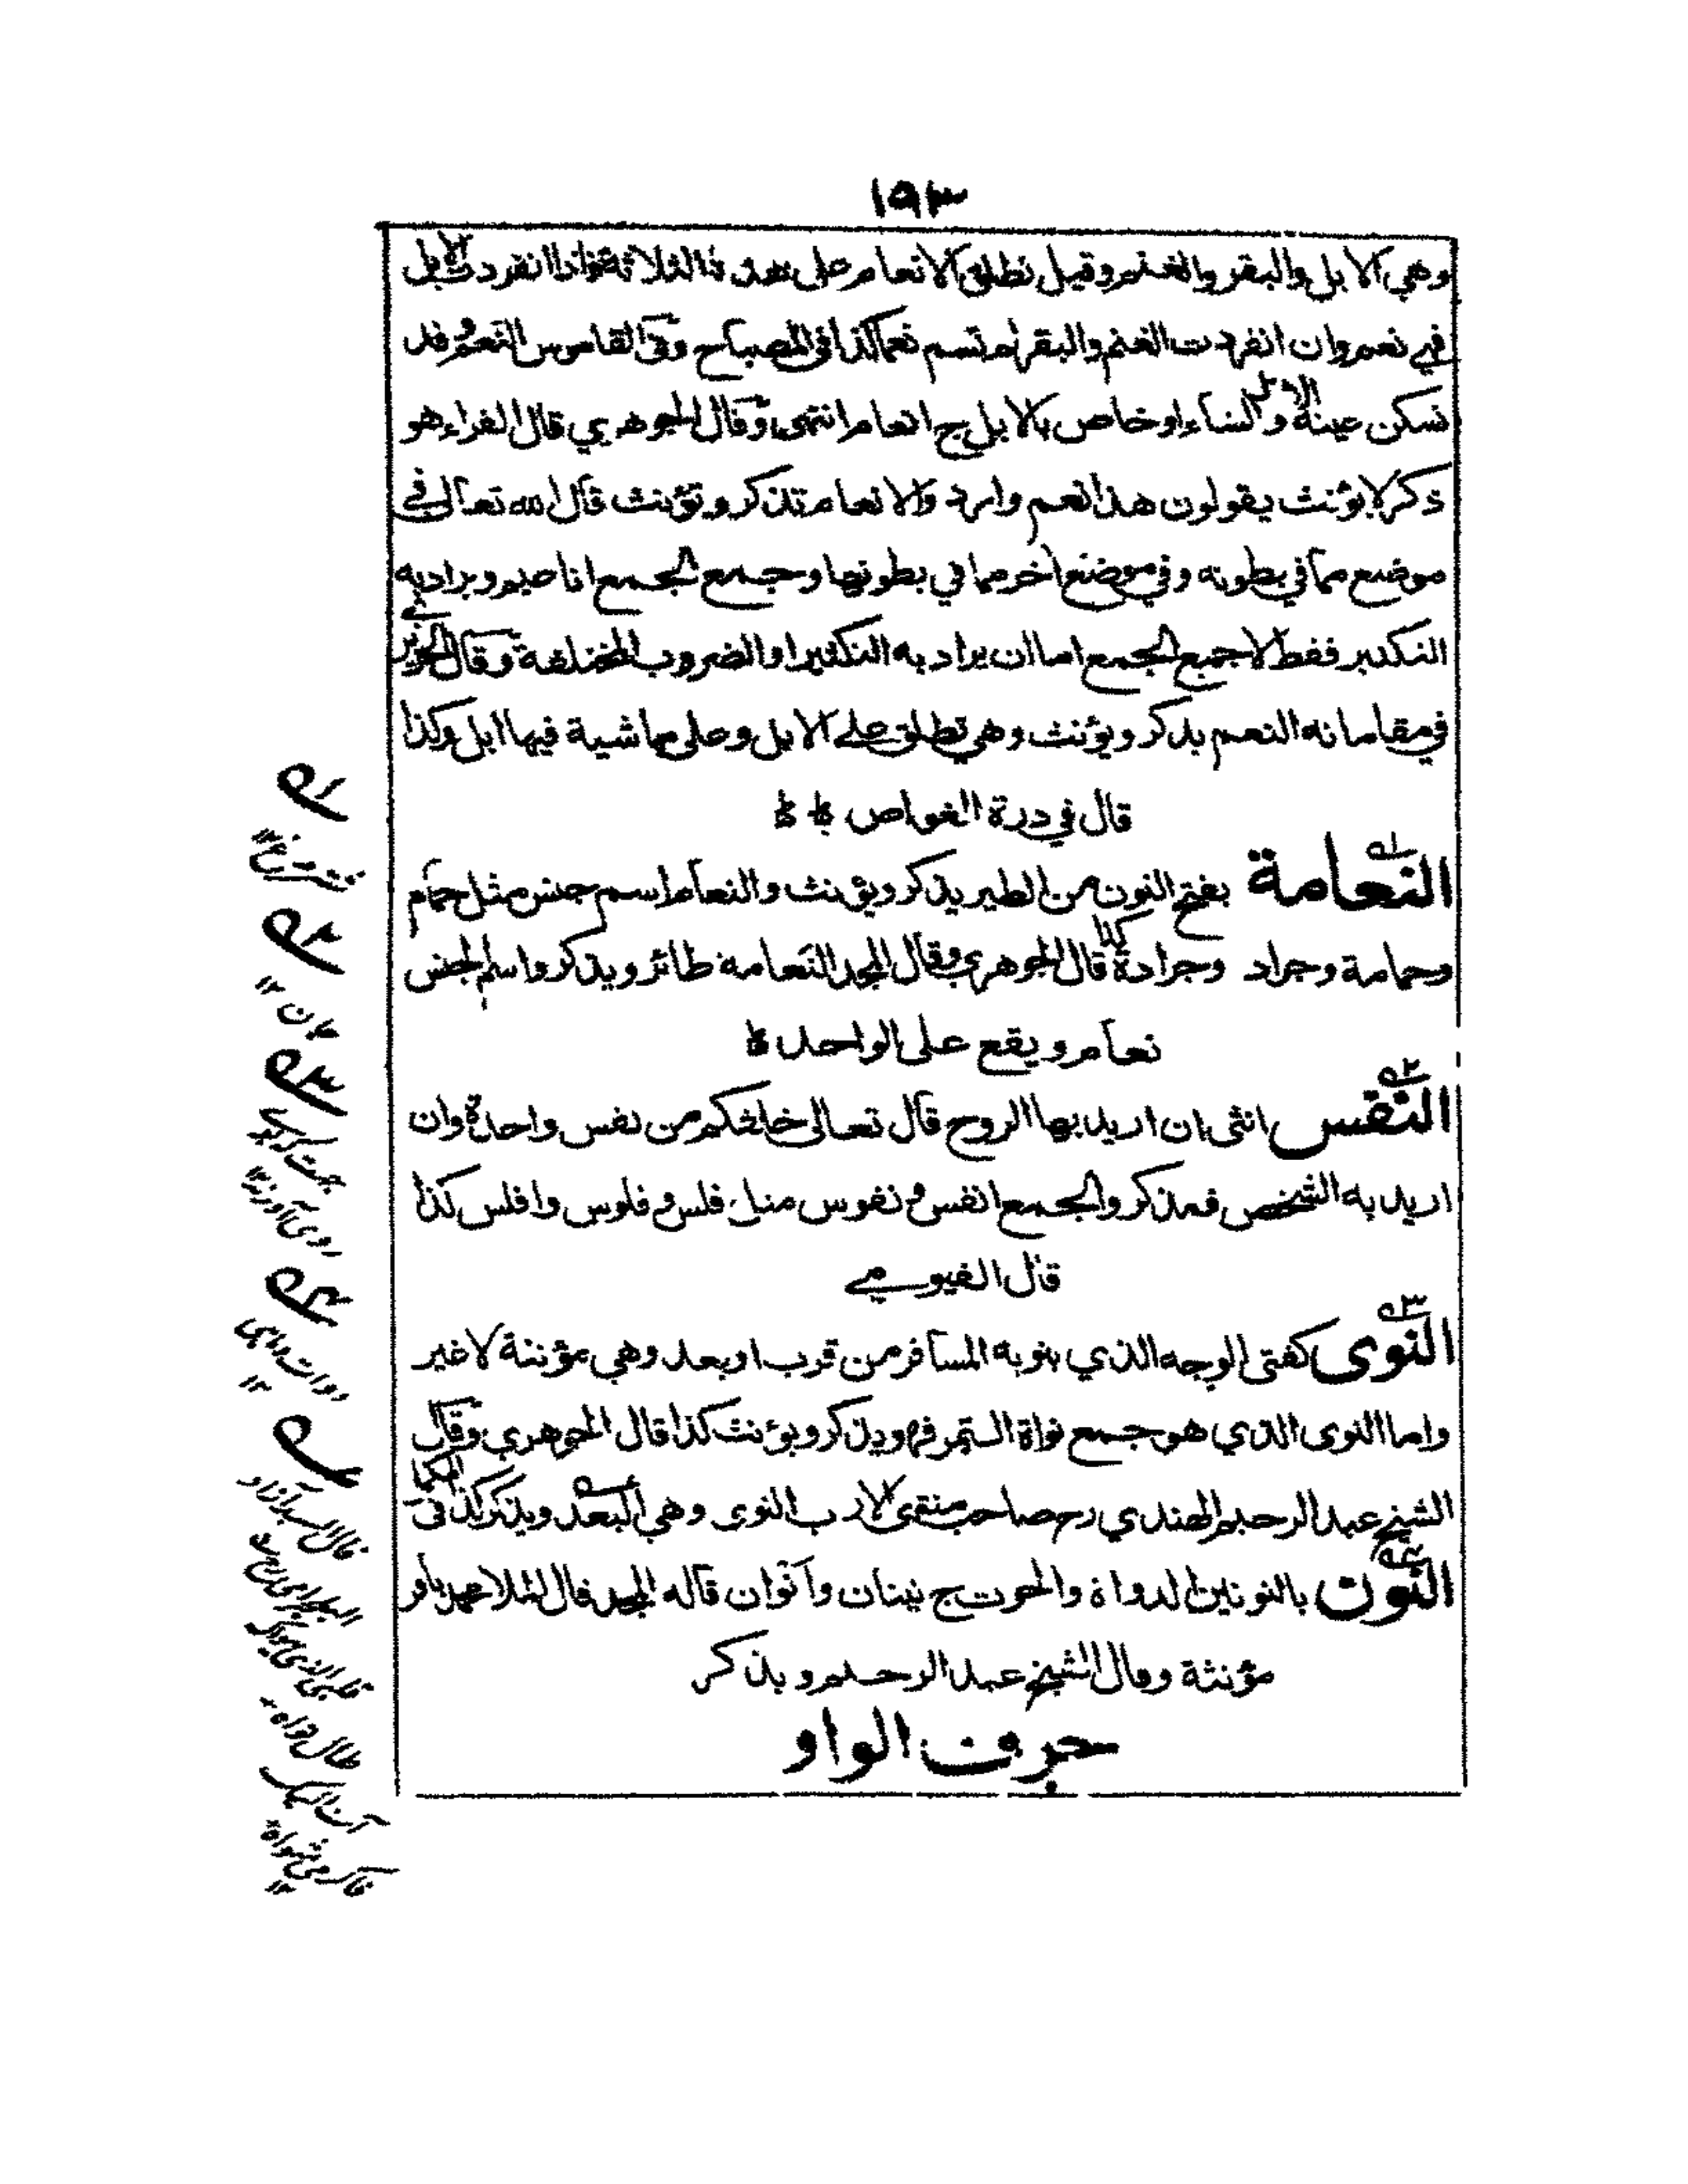 ١٩٣
وهي الابل والبقر والغنم وقيل تطلق الانعام على هذه الثلاثة فاذا انفردت الابل
فهي نعم وان انفردت الغنم والبقر لم تسم نعما كذا في المصباح وفي القاموس النعم وقد
تسكن عينه الابل والشاء او خاص بالابل ج انعام انتهى وقال الجوهري قال الفراء هو
ذكر لا يؤنث يقولون هذا نعم وارد والانعام تذكر وتؤنث قال الله تعالى في
موضع مما في بطونه وفي موضع اخر مما في بطونها وجمع الجمع اناعيم ويراد به
التكثير فقط لا جمع الجمع اما ان يراد به التكثير او الضروب المختلفة وقال الحريري
في مقاماته النعم يذكر ويؤنث وهي تطلق على الابل وعلى ماشية فيها ابل وكذا
قال في درة الغواص
النعامة بفتح النون من الطير يذكر ويؤنث والنعام اسم جنس مثل حمام
وحمامة وجراد وجرادة كذا قال الجوهري وقال المجد النعامة طائر ويذكر واسم الجنس
نعام ويقع على الواحد
النفس انثى ان اريد بها الروح قال تعالى خلقكم من نفس واحدة وان
اريد به الشخص فمذكر والجمع انفس ونفوس مثل فلس وفلوس وافلس كذا
قال الفيومي
النوى كفتى الوجه الذي ينويه المسافر من قرب او بعد وهي مؤنثة لا غير
واما النوى الذي هو جمع نواة التمر فهو يذكر ويؤنث كذا قال الجوهري وقال
الشيخ عبد الرحيم الهندي رح صاحب منتهى الارب النوى وهي البعد ويذكر كذا في
النون بالنونين الدواة والحوت ج نينان وانوان قاله المجد قال الملا محمد باقر
مؤنثة وقال الشيخ عبد الرحيم ويذكر
حرف الواو
شترمرغ ١٢
جان ١٢